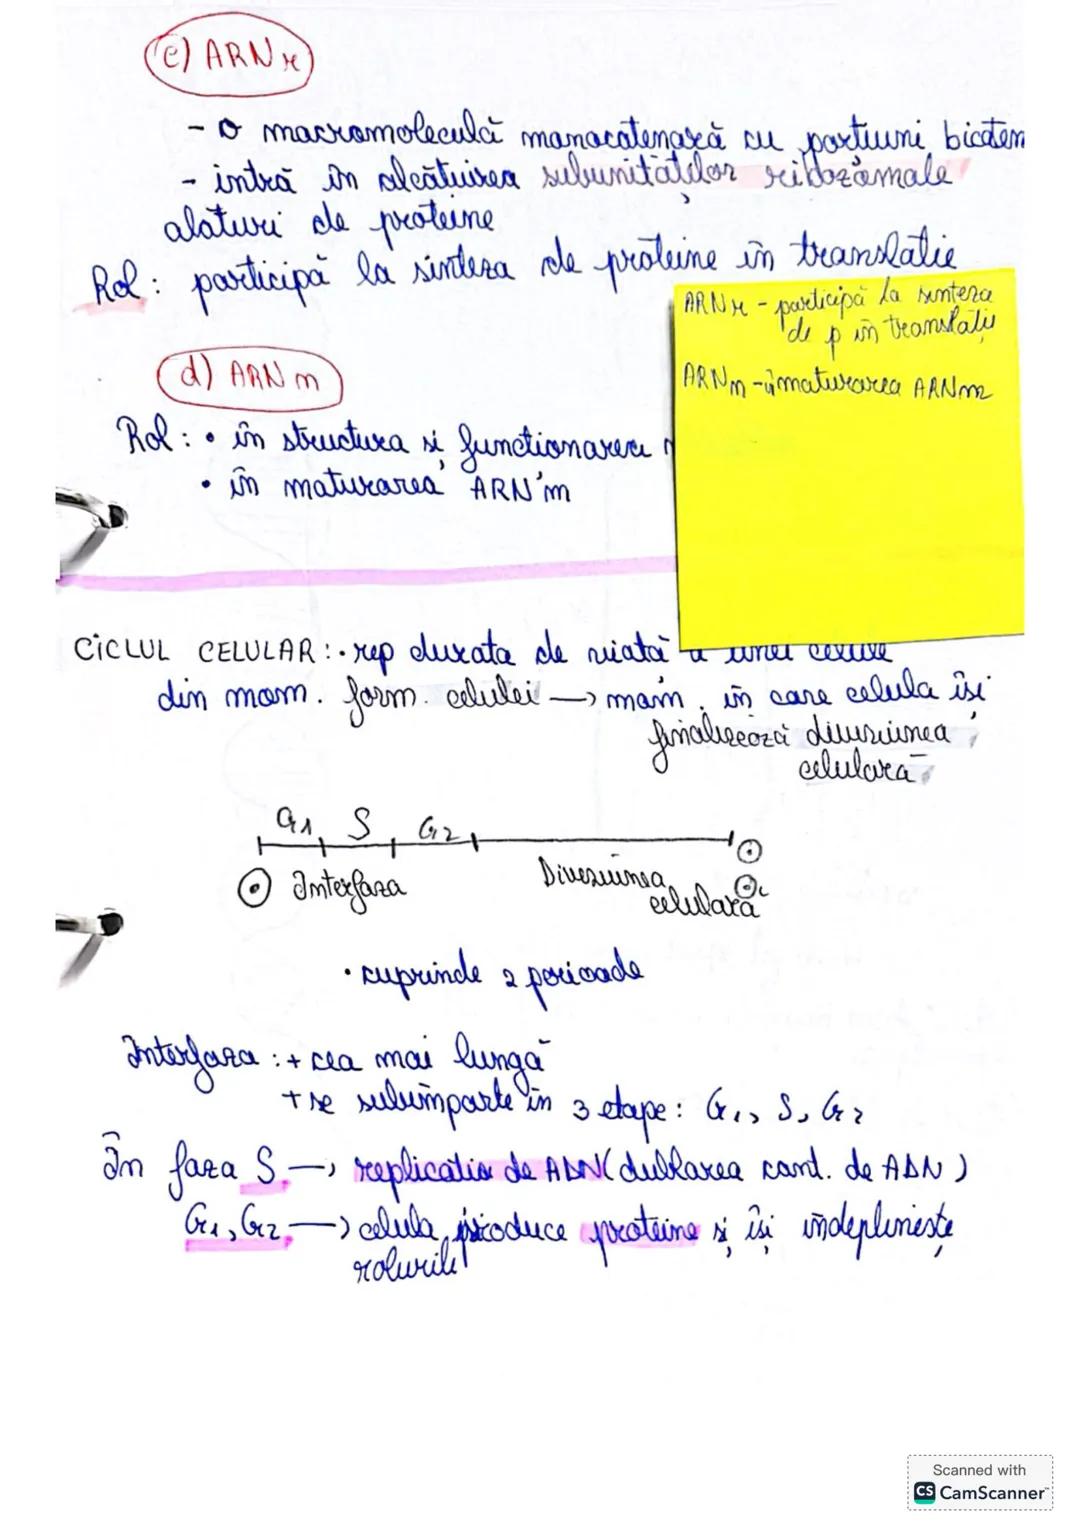 c) ARN r
- o macromoleculă monocatenară cu porțiuni bicaten
- intră în alcătuirea subunităților ribozomale
alaturi de proteine
Rol: participă la sinteza de proteine în translatie
ARN r - participă la sinteza
de p în translație
ARN m - maturarea ARNm
d) ARN m
Rol: • în structura și functionarea
• în maturarea ARN m
CICLUL CELULAR: • rep durata de viată a unei celule
din mom. form. celulei → mom. în care celula își
finalizează diviziunea
celulară
G1 S G2
Interfaza Diviziunea
celulară
• cuprinde 2 perioade
Interfaza: + cea mai lungă
+ se subîmparte în 3 etape: G1, S, G2
În faza S → replicatia de ADN (dublarea cant. de ADN)
G1, G2 → celula produce proteine și își îndeplinește
rolurile
Scanned with
CS CamScanner